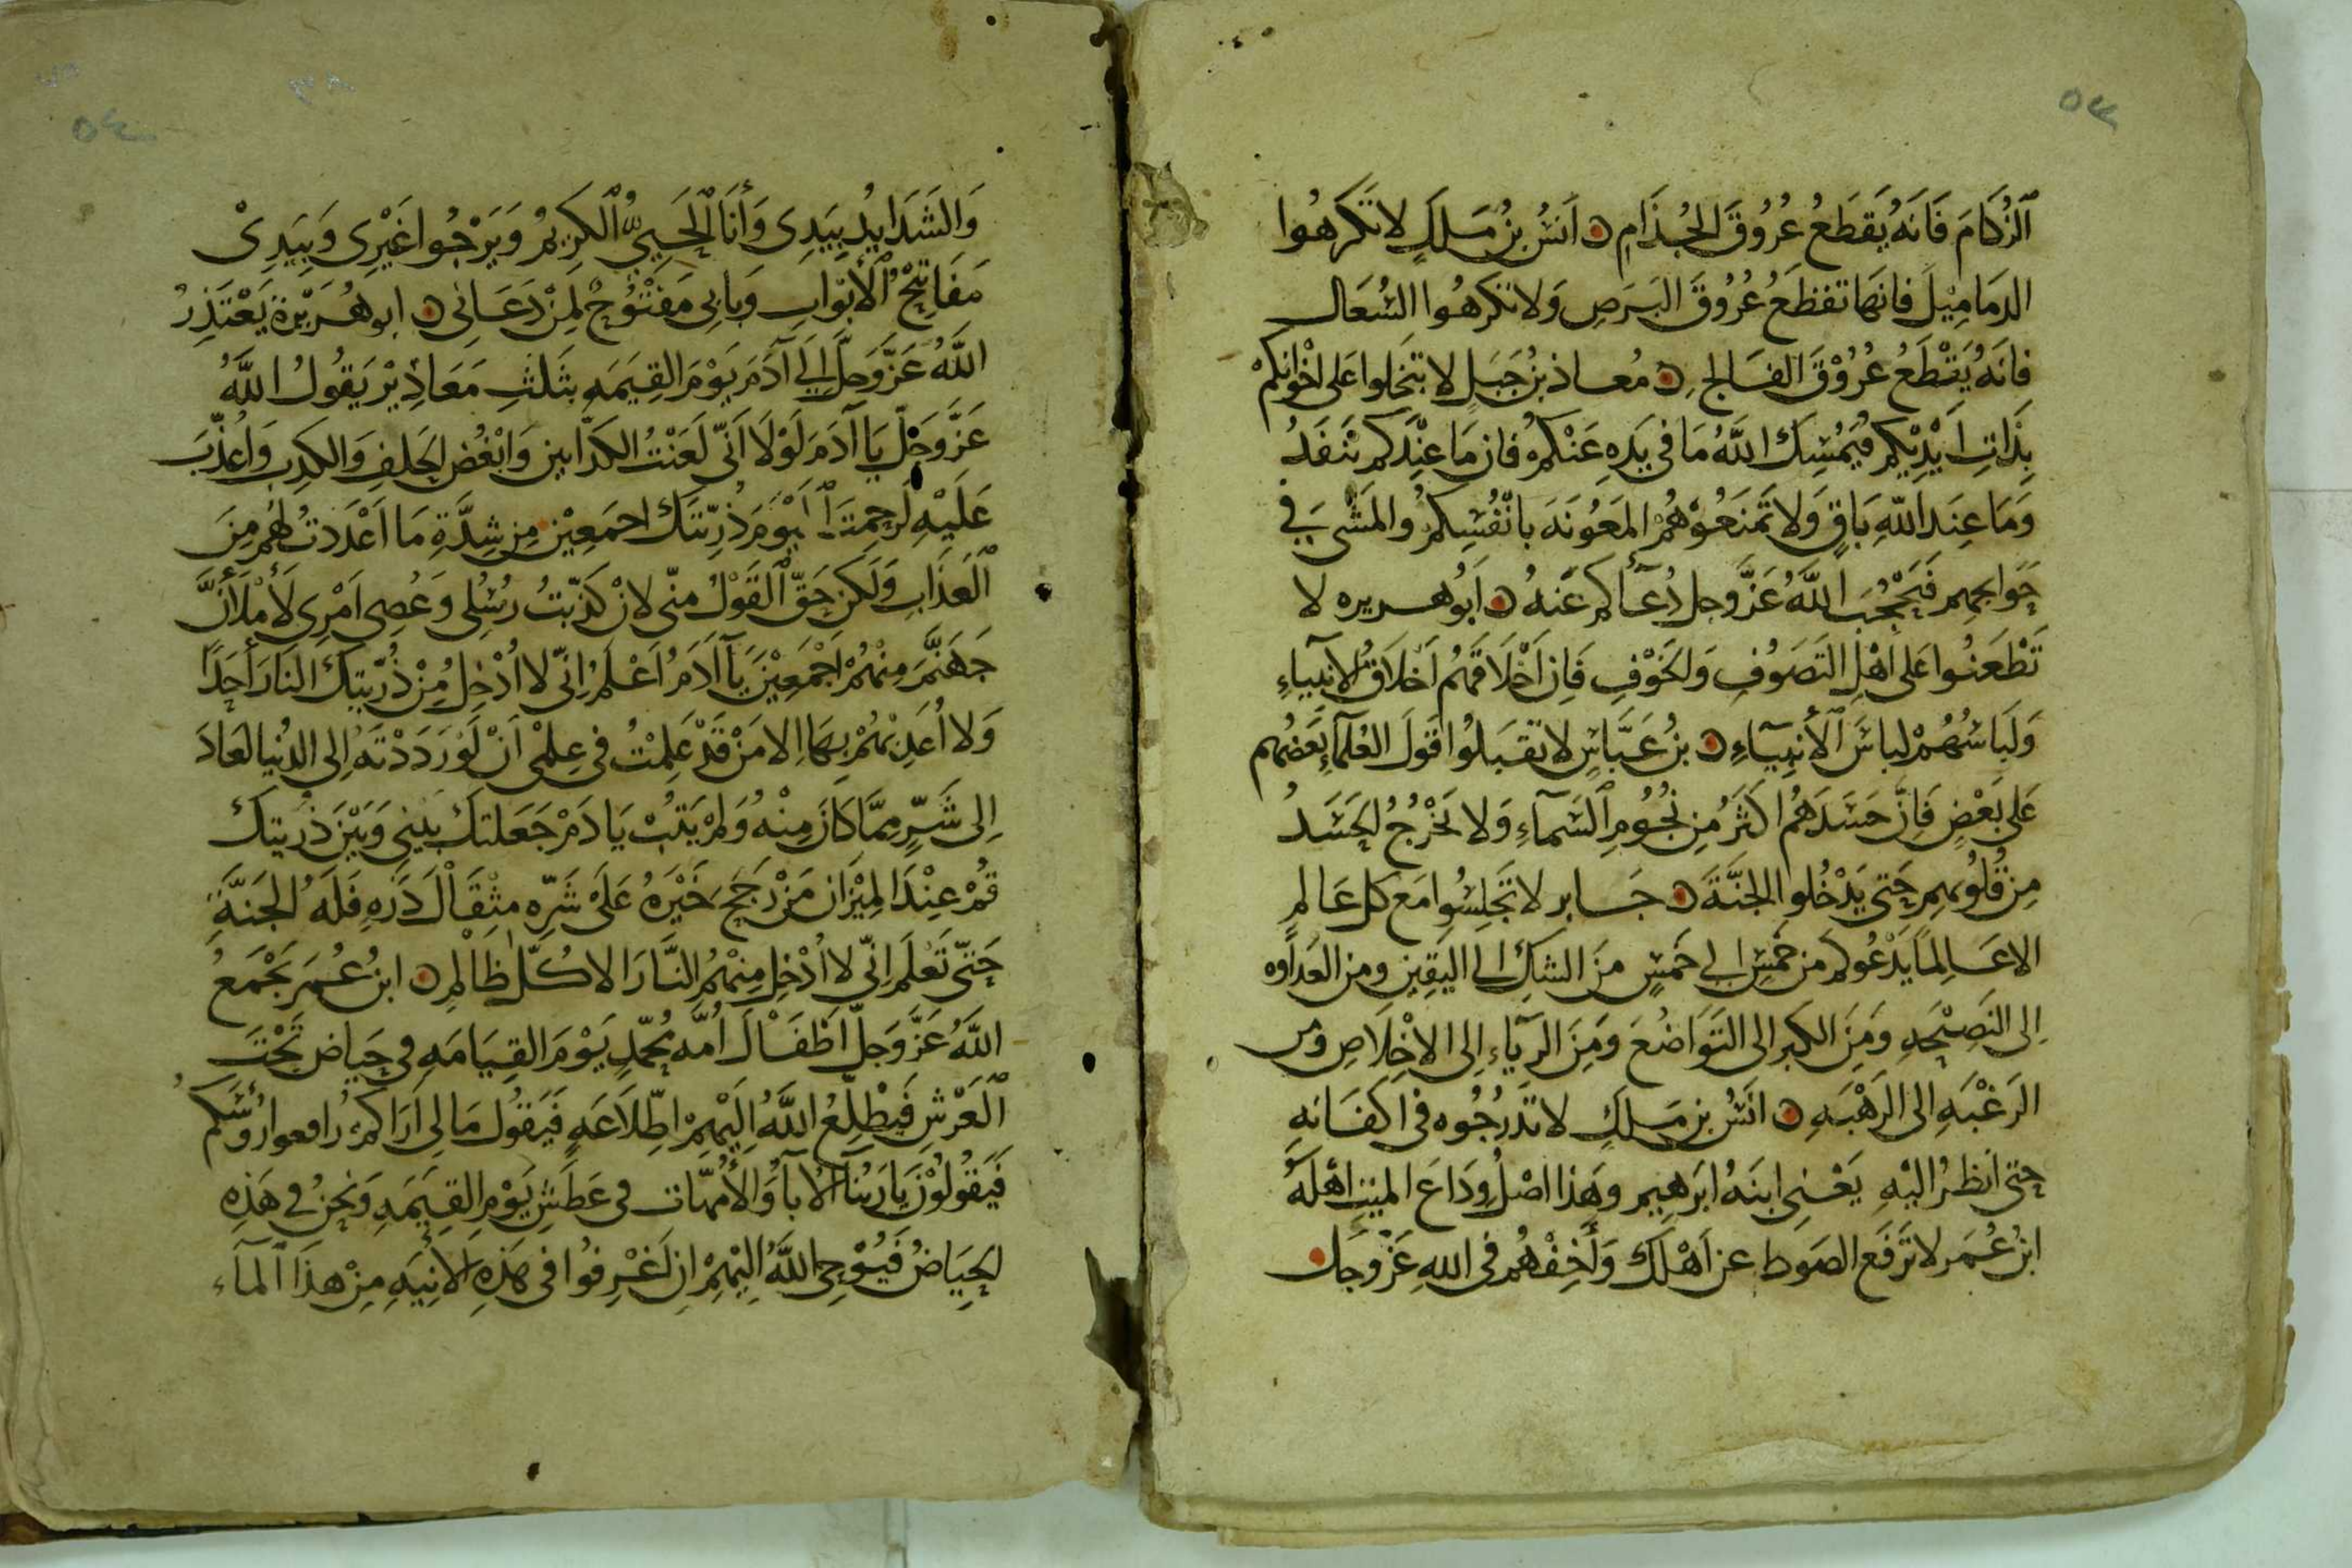 ٥٣
الزُكَامَ فَانَهُ يَقطَعُ عُرُوقَ الجُذَامِ ۝ اَنسُ بنُ مَلِكٍ لا تَكرهُوا
الدمَامِيْلَ فانهَا تقطَعُ عُرُوقَ البَرَصِ وَلا تكرهُوا السُعَال
فانَهُ يَقْطَعُ عُرُوْقَ الفَالجِ ۝ مُعاذ بن جَبَلٍ لا تبَخلوا على اخْوانِكمْ
بِذَاتِ اَيْدِيْكم فيُمْسِكَ اللَّهُ مَا فى يَدِهِ عَنْكمْ فان مَا عنْدكم يَنفَدُ
وَمَا عِندَ اللّهِ بَاقٍ وَلا تَمنَعُوْهُمْ المَعُونَه بانْفُسِكمْ والمَشْىَ فِي
حَوايجهِم فَيَحْجُبَ اللَّهُ عَزَّ وجل دُعَآكم عَنهُ ۝ اَبُو هريره لا
تَطْعَنُوا عَلى اَهْلِ التَصَوُفِ وَالخَوْفِ فَان اَخْلاَقَهُم اَخلاَقُ الانبِياءِ
وَلَبَاسُهُمْ لباسَ الأنبِيآءِ ۝ بنُ عَبَّاسٍ لا تقبَلُوا قولَ العُلمآءِ بَعَضهُم
عَلى بَعْضٍ فَاِنَّ حَسَدَهُم اكثَرُ مِن نُجُومِ السَّمآءِ وَلا يَخْرُجُ الحَسَدُ
مِن قُلُوبهِم حَتى يَدْخُلُوا الجَنَّةَ ۝ جَابر لا تَجلِسُوا مَع كل عَالمٍ
الا عَالِمًا يَدْعُوكم من خَمْسٍ الي خَمْسٍ منَ الشكِ الي اليَقِين ومن العَداوه
إلى النَصِيْحَهِ وَمِنَ الكبر الى التَوَاضُعَ وَمِنَ الريآءِ إلى الاخْلَاصِ ومن
الرَغْبَهِ الى الرَهْبَهِ ۝ انَسُ بن مَلكٍ لا تَدرُجُوه فى اكفَانهِ
حتى اَنظُرُ اليْهِ يَعْنِى ابنَهُ ابرَهِيم وهَذا اصْلُ وِدَاعَ الميت اهْلَهُ
ابنُ عُمَر لا تَرفَع الصَوط عن اَهْلكَ وَأَخِفْهُم فى اللهِ عَزّ وجَل
٥٤
وَالشَدَايدُ بِيَدِى وَأنَا الحَيُّ الكَرِيمُ وَيَرْجُوا غَيْرِى وَبِيَدِىْ
مَفَاتِيْحُ الأبْوَابِ وَبَابِى مَفْتُوْحٌ لِمَنْ دَعَانِى ۝ ابو هُرَيْرَة يَعْتَذِرُ
اللَّهُ عَزَّ وَجَلَّ الِي آدَمَ يَوْمَ القِيَمَهِ بثَلثِ مَعَاذِيْر يَقُولُ اللَّهُ
عَزَّ وَجَلّ يَا آدَمَ لَوْلَا اَنّى لَعَنْتُ الكَذَّابين وَابْغُض الحَلِفِ وَالكَذِبِ وَاُعَذّب
عَلَيْهِ لَرحِمتَ اليَوْمَ ذُرِيَّتكَ اجمَعِيْن مِن شِدَّةِ مَا اَعْدَدتُ لهُم مِنَ
العَذَابِ وَلَكن حَقّ القَوْلُ منّى لان كذّبتُ رُسُلِى وَعُصِى اَمْرِى لأَمْلَأَنَّ
جَهَنَّمَ مِنهُمْ اَجْمَعِيْنَ يَآ آدَمُ اَعْلَمْ اِنّى لا اُدْخِل مِنْ ذُرّيتِكَ النَارَ أَحَدًا
وَلا اُعَذِبْهُمْ بِهَا الا مَنْ قَدْ عَلِمْتُ فى عِلمْى اَنْ لَوْ رَدَدْتَهُ إلى الدُنيا لعَادَ
إلى شَرٍّ مِمَّا كَانَ مِنْهُ وَلَمْ يَتُبْ يَا دَمْ جَعَلتكَ بَيْنِى وَبَيْنَ ذُريتكَ
قُمْ عِنْدَ المِيْزَان مَنْ رَجَحَ خَيْرَهُ عَلَىْ شَرّهِ مِثْقَالَ ذَرَهِ فَلَهُ الجَنةَ
حَتّى تَعْلَم اِنّى لا اُدْخِل مِنهُم النَّارَ الا كُلّ ظَالمٍ ۝ ابنُ عُمَر يَجْمَعُ
اللَّهُ عَزَّ وَجَلّ اطْفَالَ اُمَّه مُحمّدٍ يَوْمَ القِيَامَهِ فى حِيَاض تَحْتَ
العَرْشِ فَيطْلِعُ اللَّهُ اِلَيْهِمْ اِطّلاَعَهٍ فَيَقُولُ مَا لِى اَرَاكمْ رَافعوا رؤُسَكم
فَيَقُولُوْنَ يَا رَبَنَا الابآ وَالأُمهّات فى عَطَشِ يَوْمِ القِيَمَهِ وَنَحْنُ في هَذِهِ
الحِيَاضُ فَيُوْحِى اللَّهُ اِلَيْهِمْ انِ اغْرِفُوا فى هَذِهِ الانِيَهِ مِنْ هذَا المآء